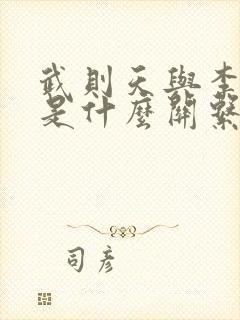 武則天與李
是什麼關繫
司彥